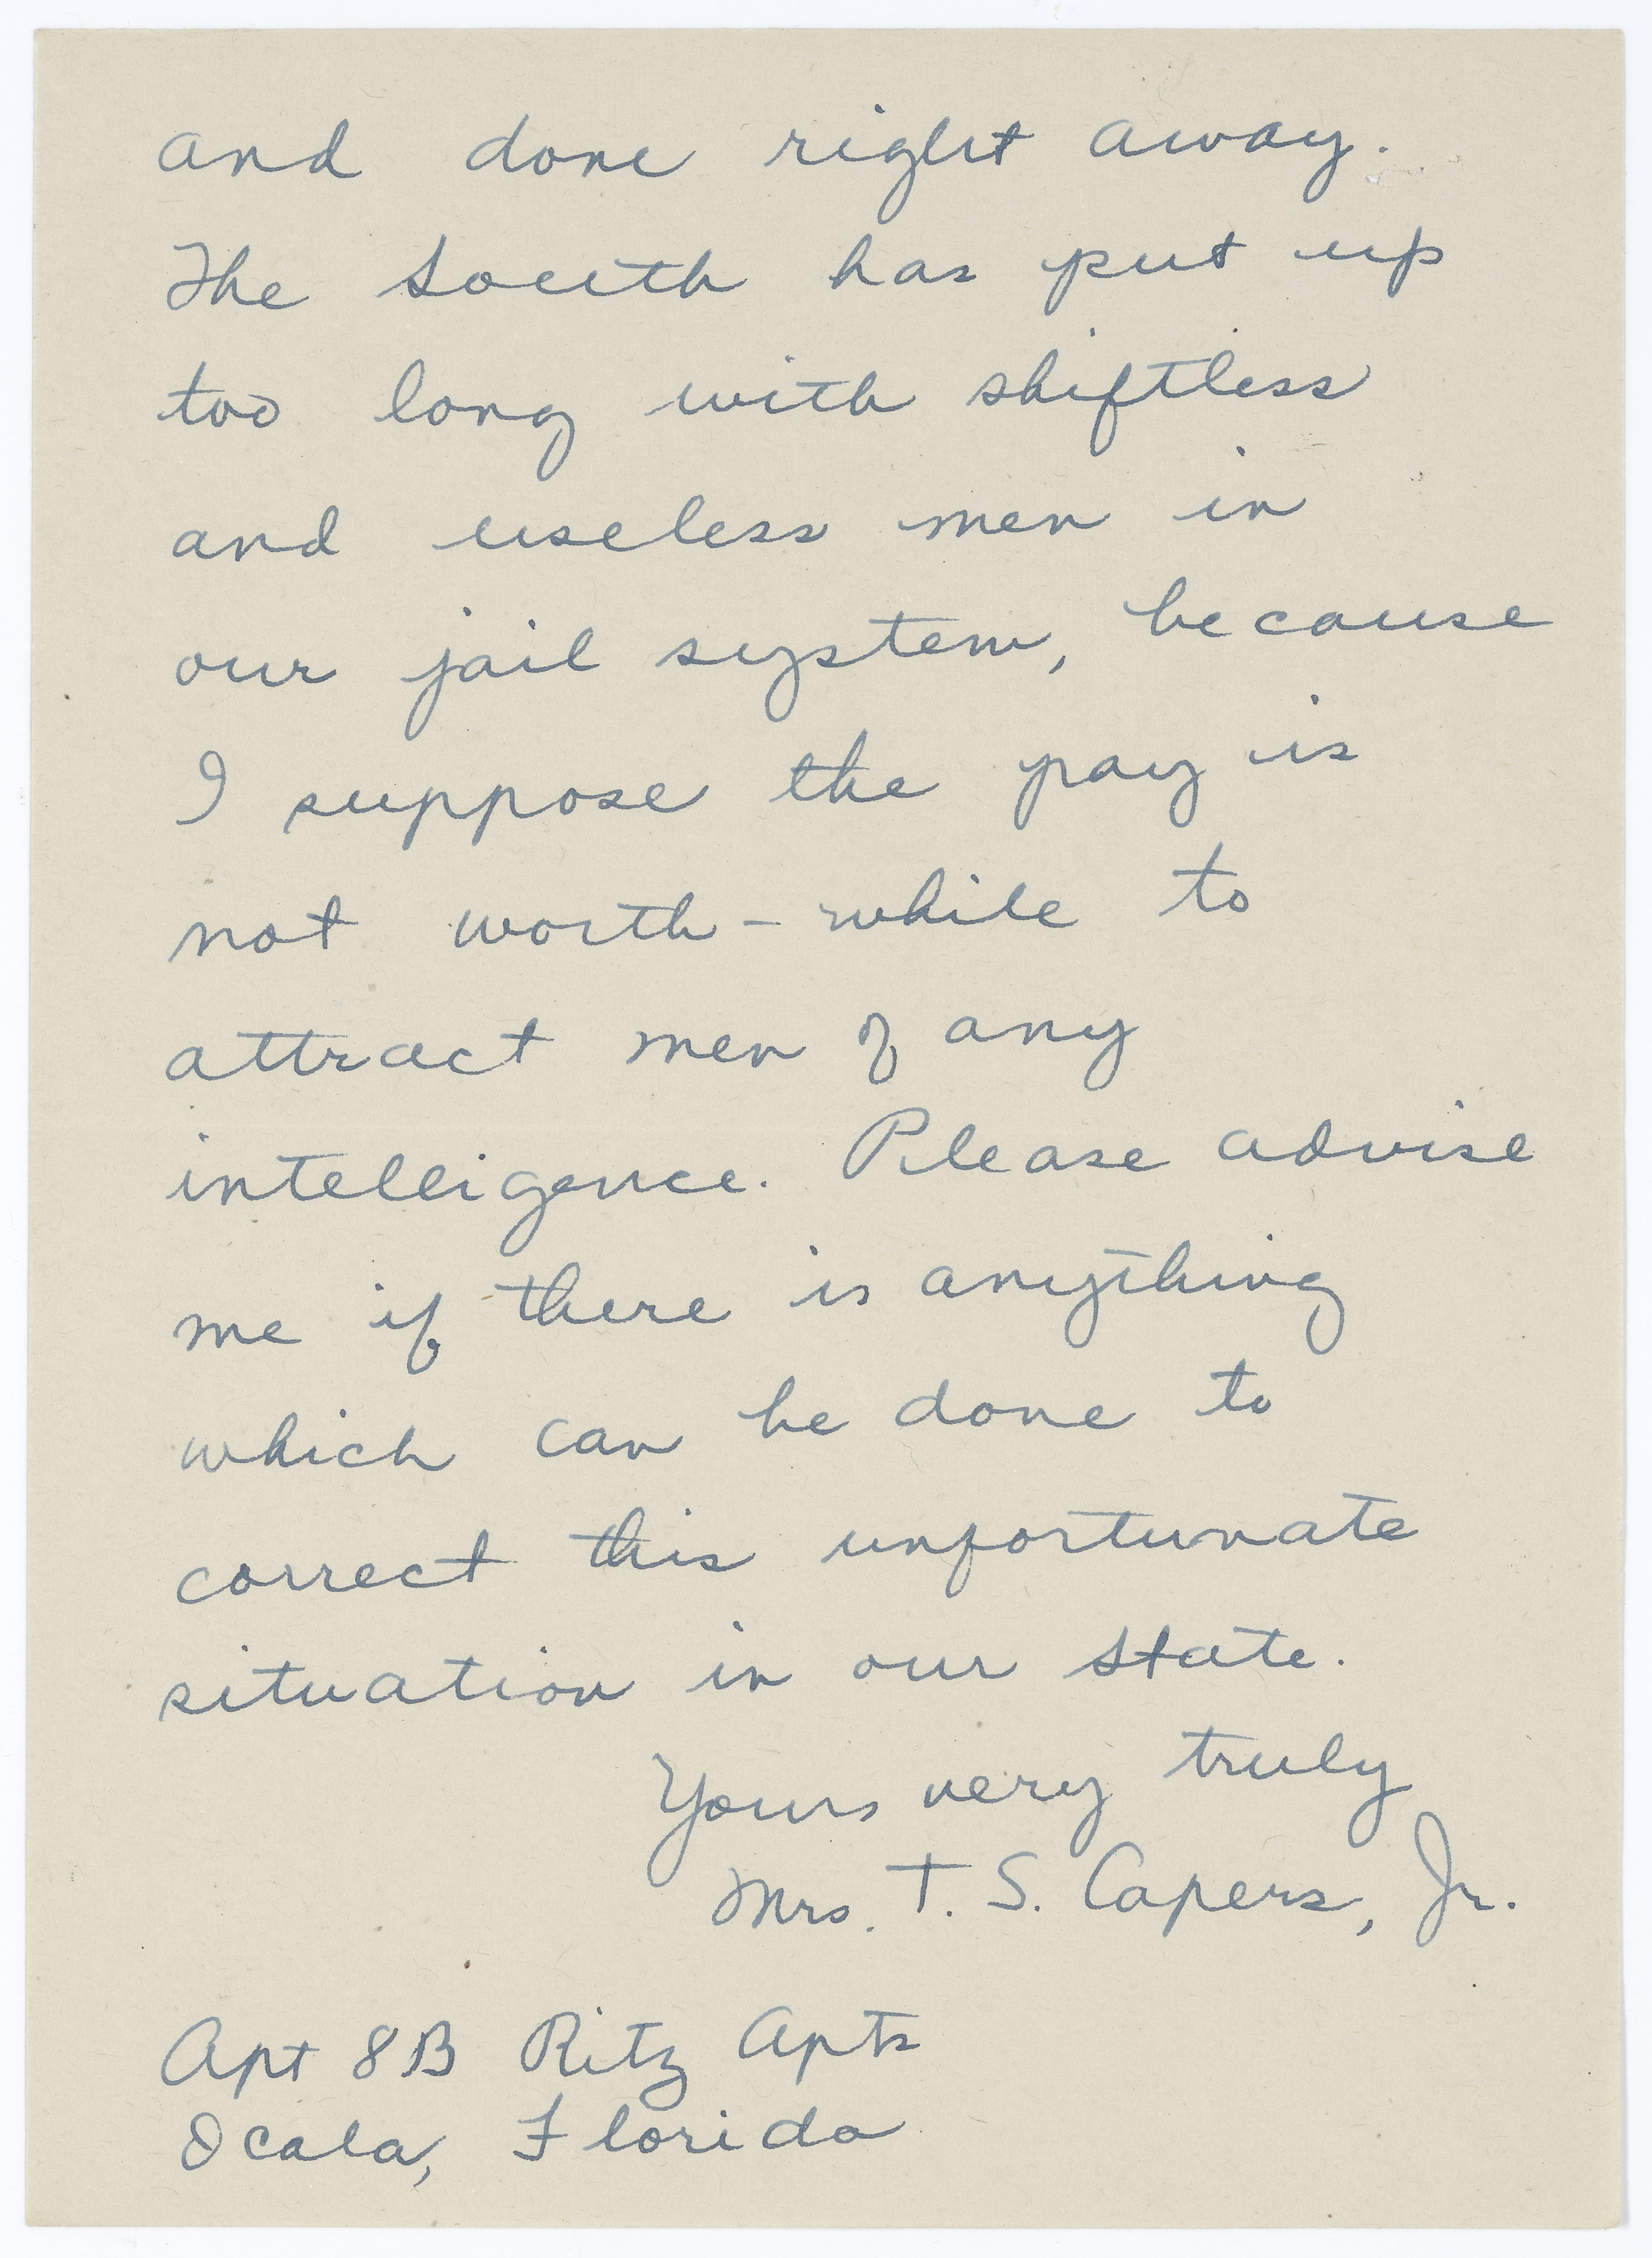 and done right away.
The South has put up
too long with shiftless
and useless men in
our jail system, because
I suppose the pay is
not worth-while to
attract men of any
intelligence. Please advise
me if there is anything
which can be done to
correct this unfortunate
situation in our state.
Yours very truly
Mrs. T. S. Capers, Jr.
Apt 8B Ritz Apts
Ocala, Florida